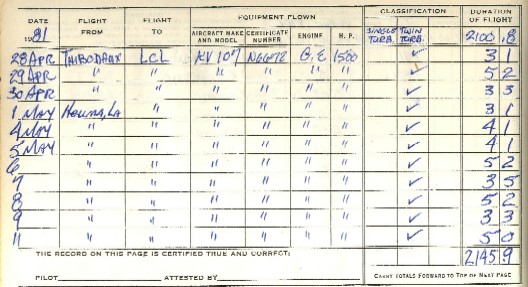 DATE FLIGHT FROM FLIGHT TO EQUIPMENT FLOWN CLASSIFICATION DURATION OF FLIGHT
1981 AIRCRAFT MAKE AND MODEL CERTIFICATE NUMBER ENGINE H.P. SINGLE TURB. TWIN TURB. 2100 8
28 APR THIBODAUX LCL KV 107 G.E 1500 ✓ 3 1
29 APR " " " " " " ✓ 5 2
30 APR " " " " " " ✓ 3 3
1 MAY HOUMA, LA " " " " " ✓ 3 1
4 MAY " " " " " " ✓ 4 1
5 MAY " " " " " " ✓ 4 1
6 " " " " " " ✓ 5 2
7 " " " " " " ✓ 3 5
8 " " " " " " ✓ 5 2
9 " " " " " " ✓ 3 3
11 " " " " " " ✓ 5 0
THE RECORD ON THIS PAGE IS CERTIFIED TRUE AND CORRECT: 2145 9
PILOT ATTESTED BY CARRY TOTALS FORWARD TO TOP OF NEXT PAGE